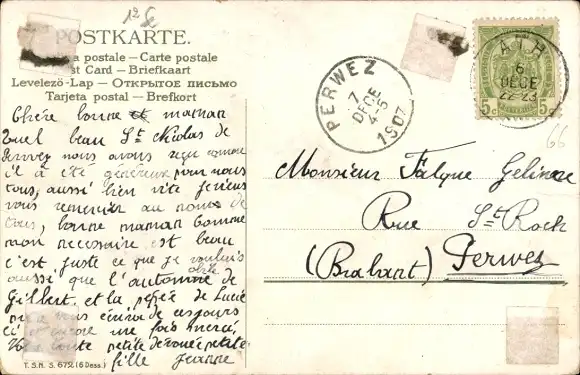 12
POSTKARTE.
postale – Carte postale
st Card – Briefkaart
Levelező-Lap – Открытое письмо
Tarjeta postal – Brefkort
Chère bonne maman
Quel beau St Nicolas de
Perwez nous avons reçu comme
il a été généreux pour nous
tous, aussi bien vite je viens
vous remercier au nom de
tous, bonne maman comme
mon necessaire est beau
c'est juste ce que je voulais
aussi que l'automne de
Gilbert et la poupée de Lucie
vous écrira de ces jours
ci et encore une fois merci,
Votre toute petite dévouée petite
fille Jeanne
T. S. N. S. 672. (6 Dess.)
PERWEZ
7
DECE
4-5
1907
ATH
6
DECE
22-23
5c 5c
66
Monsieur Falque Gelinne
Rue St Roch
(Brabant) Perwez